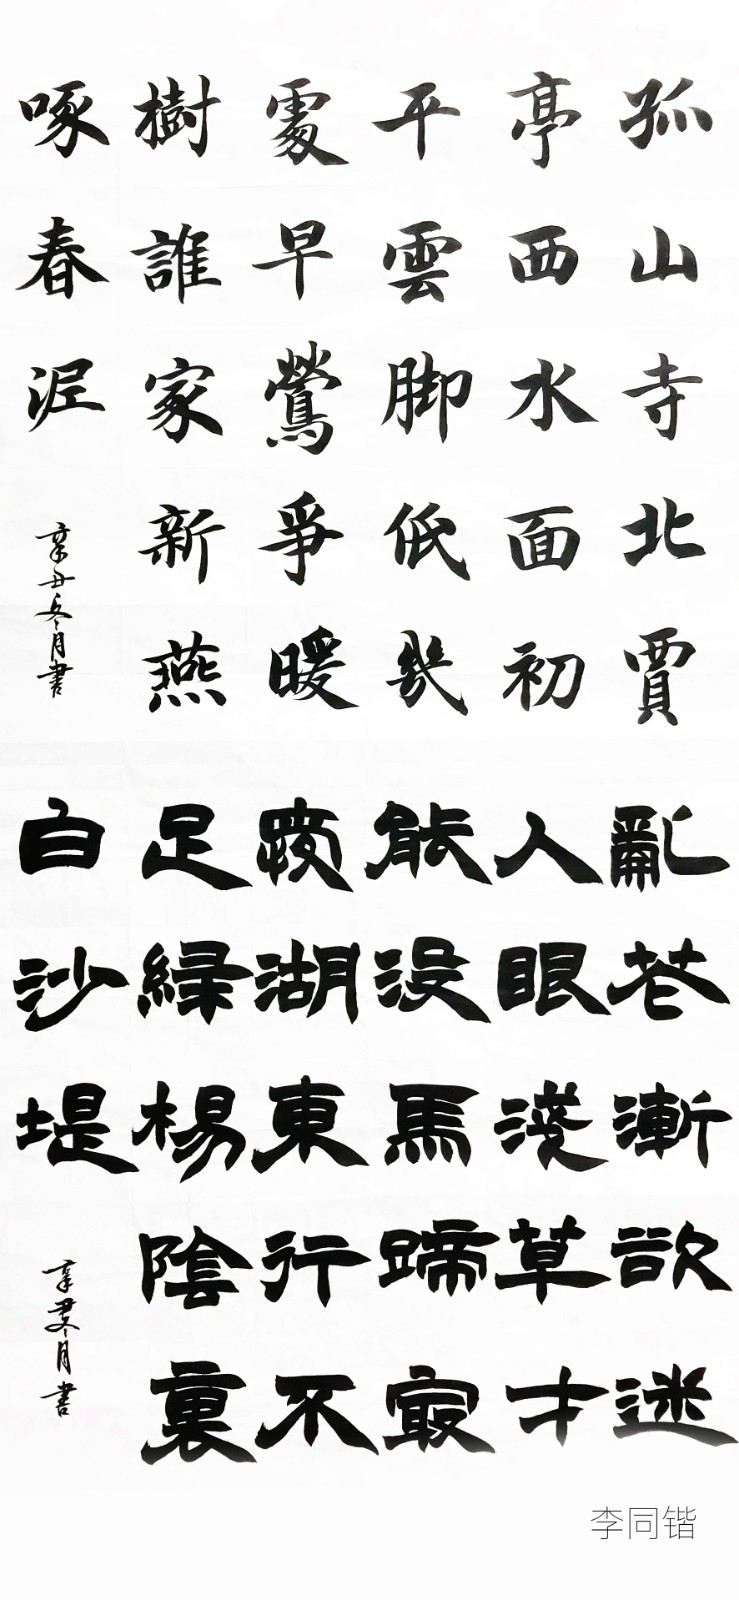 孤山寺北賈
亭西水面初
平雲脚低幾
處早鶯爭暖
樹誰家新燕
啄春泥
辛丑冬月書
亂花漸欲迷
人眼淺草才
能沒馬蹄最
愛湖東行不
足綠楊陰裏
白沙堤
辛丑冬月書
李同锴